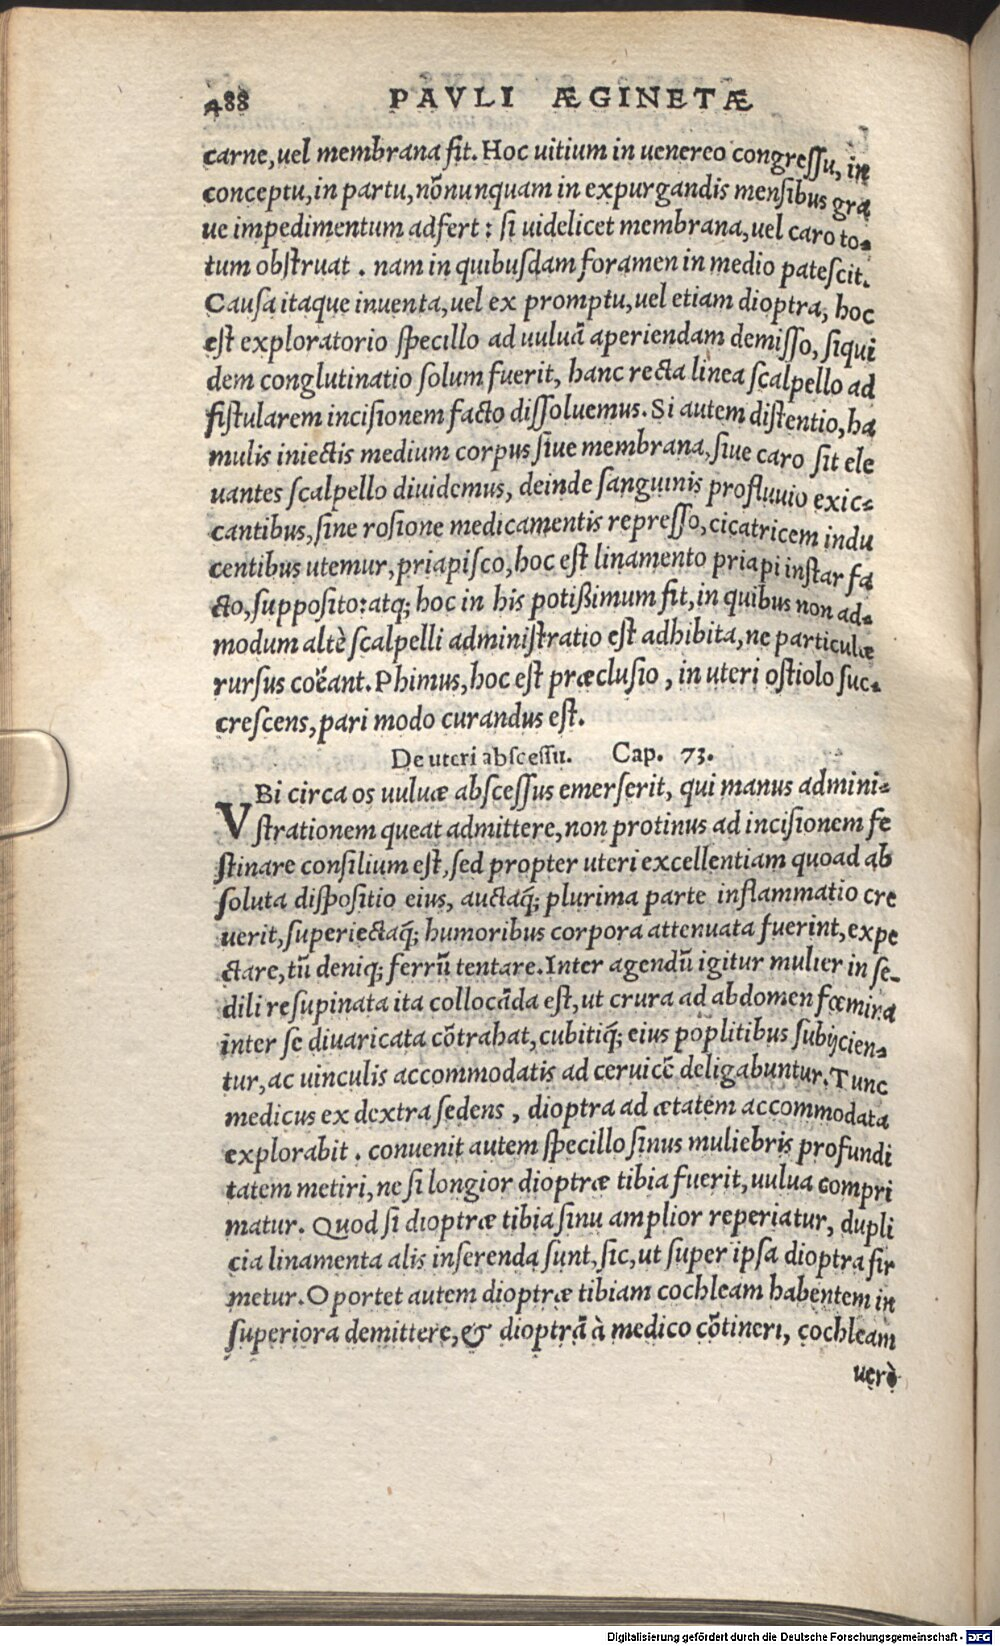 488 PAVLI ÆGINETÆ
carne, uel membrana fit. Hoc uitium in uenereo congreſſu, in
conceptu, in partu, nõnunquam in expurgandis menſibus gra
ue impedimentum adfert: ſi uidelicet membrana, uel caro to-
tum obſtruat. nam in quibuſdam foramen in medio pateſcit.
Cauſa itaque inuenta, uel ex promptu, uel etiam dioptra, hoc
eſt exploratorio ſpecillo ad uuluã aperiendam demiſſo, ſiqui
dem conglutinatio ſolum fuerit, hanc recta linea ſcalpello ad
fiſtularem inciſionem facto diſſoluemus. Si autem diſtentio, ha
mulis iniectis medium corpus ſiue membrana, ſiue caro ſit ele
uantes ſcalpello diuidemus, deinde ſanguinis profluuio exic-
cantibus, ſine roſione medicamentis repreſſo, cicatricem indu
centibus utemur, priapiſco, hoc eſt linamento priapi inſtar fa
cto, ſuppoſito: atq; hoc in his potißimum fit, in quibus non ad-
modum altè ſcalpelli adminiſtratio eſt adhibita, ne particulæ
rurſus coëant. Phimus, hoc eſt præcluſio, in uteri oſtiolo ſuc-
creſcens, pari modo curandus eſt.
De uteri abſceſſu. Cap. 73.
VBi circa os uuluæ abſceſſus emerſerit, qui manus admini-
ſtrationem queat admittere, non protinus ad inciſionem fe
ſtinare conſilium eſt, ſed propter uteri excellentiam quoad ab
ſoluta diſpoſitio eius, auctaq́; plurima parte inflammatio cre
uerit, ſuperiectaq́; humoribus corpora attenuata fuerint, expe
ctare, tũ deniq; ferrũ tentare. Inter agendũ igitur mulier in ſe-
dili reſupinata ita collocãda eſt, ut crura ad abdomen fœmina
inter ſe diuaricata cõtrahat, cubitiq́; eius poplitibus ſubijcien-
tur, ac uinculis accommodatis ad ceruicẽ deligabuntur. Tunc
medicus ex dextra ſedens, dioptra ad ætatem accommodata
explorabit. conuenit autem ſpecillo ſinus muliebris profundi
tatem metiri, ne ſi longior dioptræ tibia fuerit, uulua compri
matur. Quod ſi dioptræ tibia ſinu amplior reperiatur, dupli
cia linamenta alis inſerenda ſunt, ſic, ut ſuper ipſa dioptra fir
metur. Oportet autem dioptræ tibiam cochleam habentem in
ſuperiora demittere, & dioptrã à medico cõtineri, cochleam
uerò
Digitalisierung gefördert durch die Deutsche Forschungsgemeinschaft - DFG